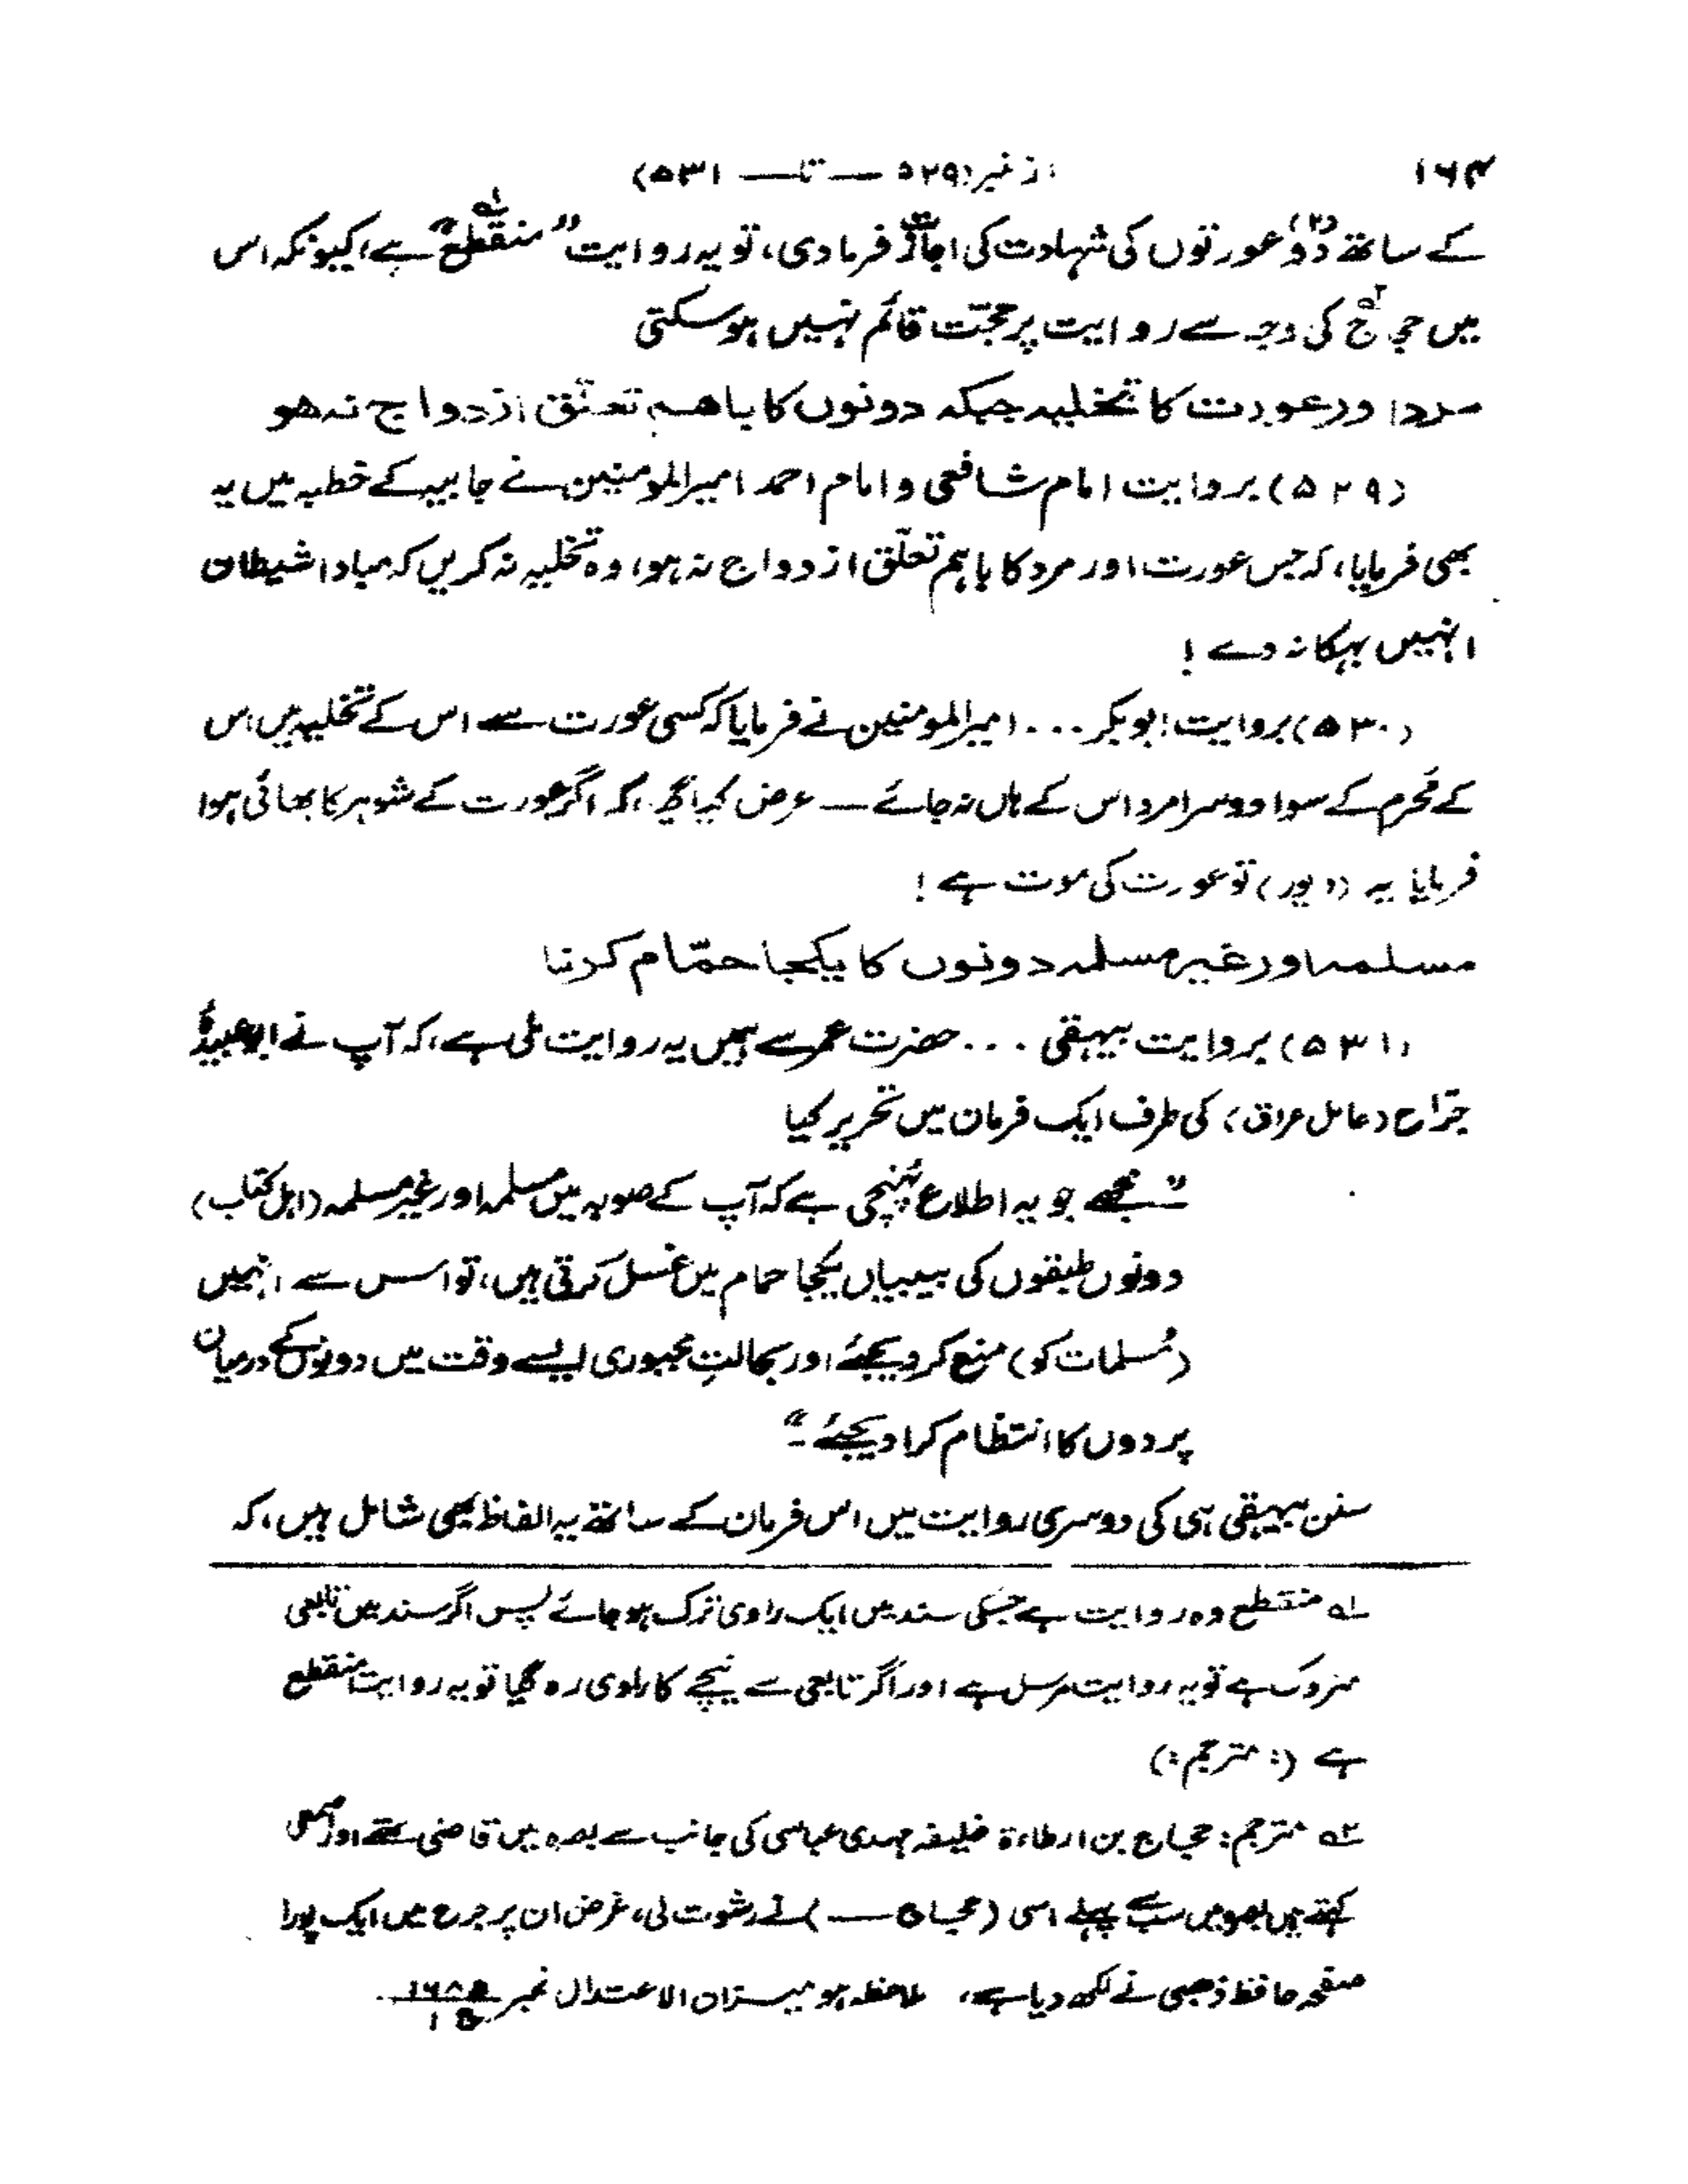 ۱۶۴
از نمبر (۵۲۹ — تا — ۵۳۱)
کے ساتھ دو (۲) عورتوں کی شہادت کی اجازت فرما دی، تو یہ روایت "منقطع"۱؎ ہے، کیونکہ اس
میں حجاج۲؎ کی وجہ سے روایت پر حجّت قائم نہیں ہو سکتی
مرد اور عورت کا تخلیہ جبکہ دونوں کا باہم تعلّق ازدواج نہ ہو
(۵۲۹) بروایت امام شافعی و امام احمد امیرالمومنین نے جابیہ کے خطبہ میں یہ
بھی فرمایا، کہ جس عورت اور مرد کا باہم تعلّق ازدواج نہ ہو، وہ تخلیہ نہ کریں کہ مبادا شیطان
انہیں بہکا نہ دے !
(۵۳۰) بروایت ابوبکر ... امیرالمومنین نے فرمایا کہ کسی عورت سے اس کے تخلیہ میں اس
کے مَحرم کے سوا دوسرا مرد اس کے ہاں نہ جائے — عرض کیا گیا، کہ اگر عورت کے شوہر کا بھائی ہو؟
فرمایا یہ (دیور) تو عورت کی موت ہے !
مسلمہ اور غیر مسلمہ دونوں کا یکجا حمّام کرنا
(۵۳۱) بروایت بیہقی ... حضرت عمر سے ہمیں یہ روایت ملی ہے، کہ آپ نے ابوعبیدہؓ
جرّاح (عامل عراق) کی طرف ایک فرمان میں تحریر کیا
"مجھے جو یہ اطلاع پہنچی ہے کہ آپ کے صوبہ میں مسلمہ اور غیر مسلمہ (اہل کتاب)
دونوں طبقوں کی بیبیاں یکجا حمام میں غسل کرتی ہیں، تو اس سے انہیں
(مُسلمات کو) منع کر دیجئے اور بحالتِ مجبوری ایسے وقت میں دونوں کے درمیان
پردوں کا انتظام کرا دیجئے۔"
سنن بیہقی ہی کی دوسری روایت میں اس فرمان کے ساتھ یہ الفاظ بھی شامل ہیں، کہ
۱؎ منقطع وہ روایت ہے جسکی سند میں ایک راوی ترک ہو جائے پس اگر سند میں تابعی
متروک ہے تو یہ روایت مرسل ہے اور اگر تابعی سے نیچے کا راوی رہ گیا تو یہ روایت منقطع
ہے (: مترجم :)
۲؎ مترجم: حجاج بن ارطاءۃ خلیفہ مہدی عباسی کی جانب سے بصرہ میں قاضی تھے اور اصمعی
کہتے ہیں بصرہ میں سب سے پہلے اسی (حجاج —) نے رشوت لی، غرض ان پر جرح میں ایک پورا
صفحہ حافظ ذہبی نے لکھ دیا ہے، ملاحظہ ہو میزان الاعتدال نمبر